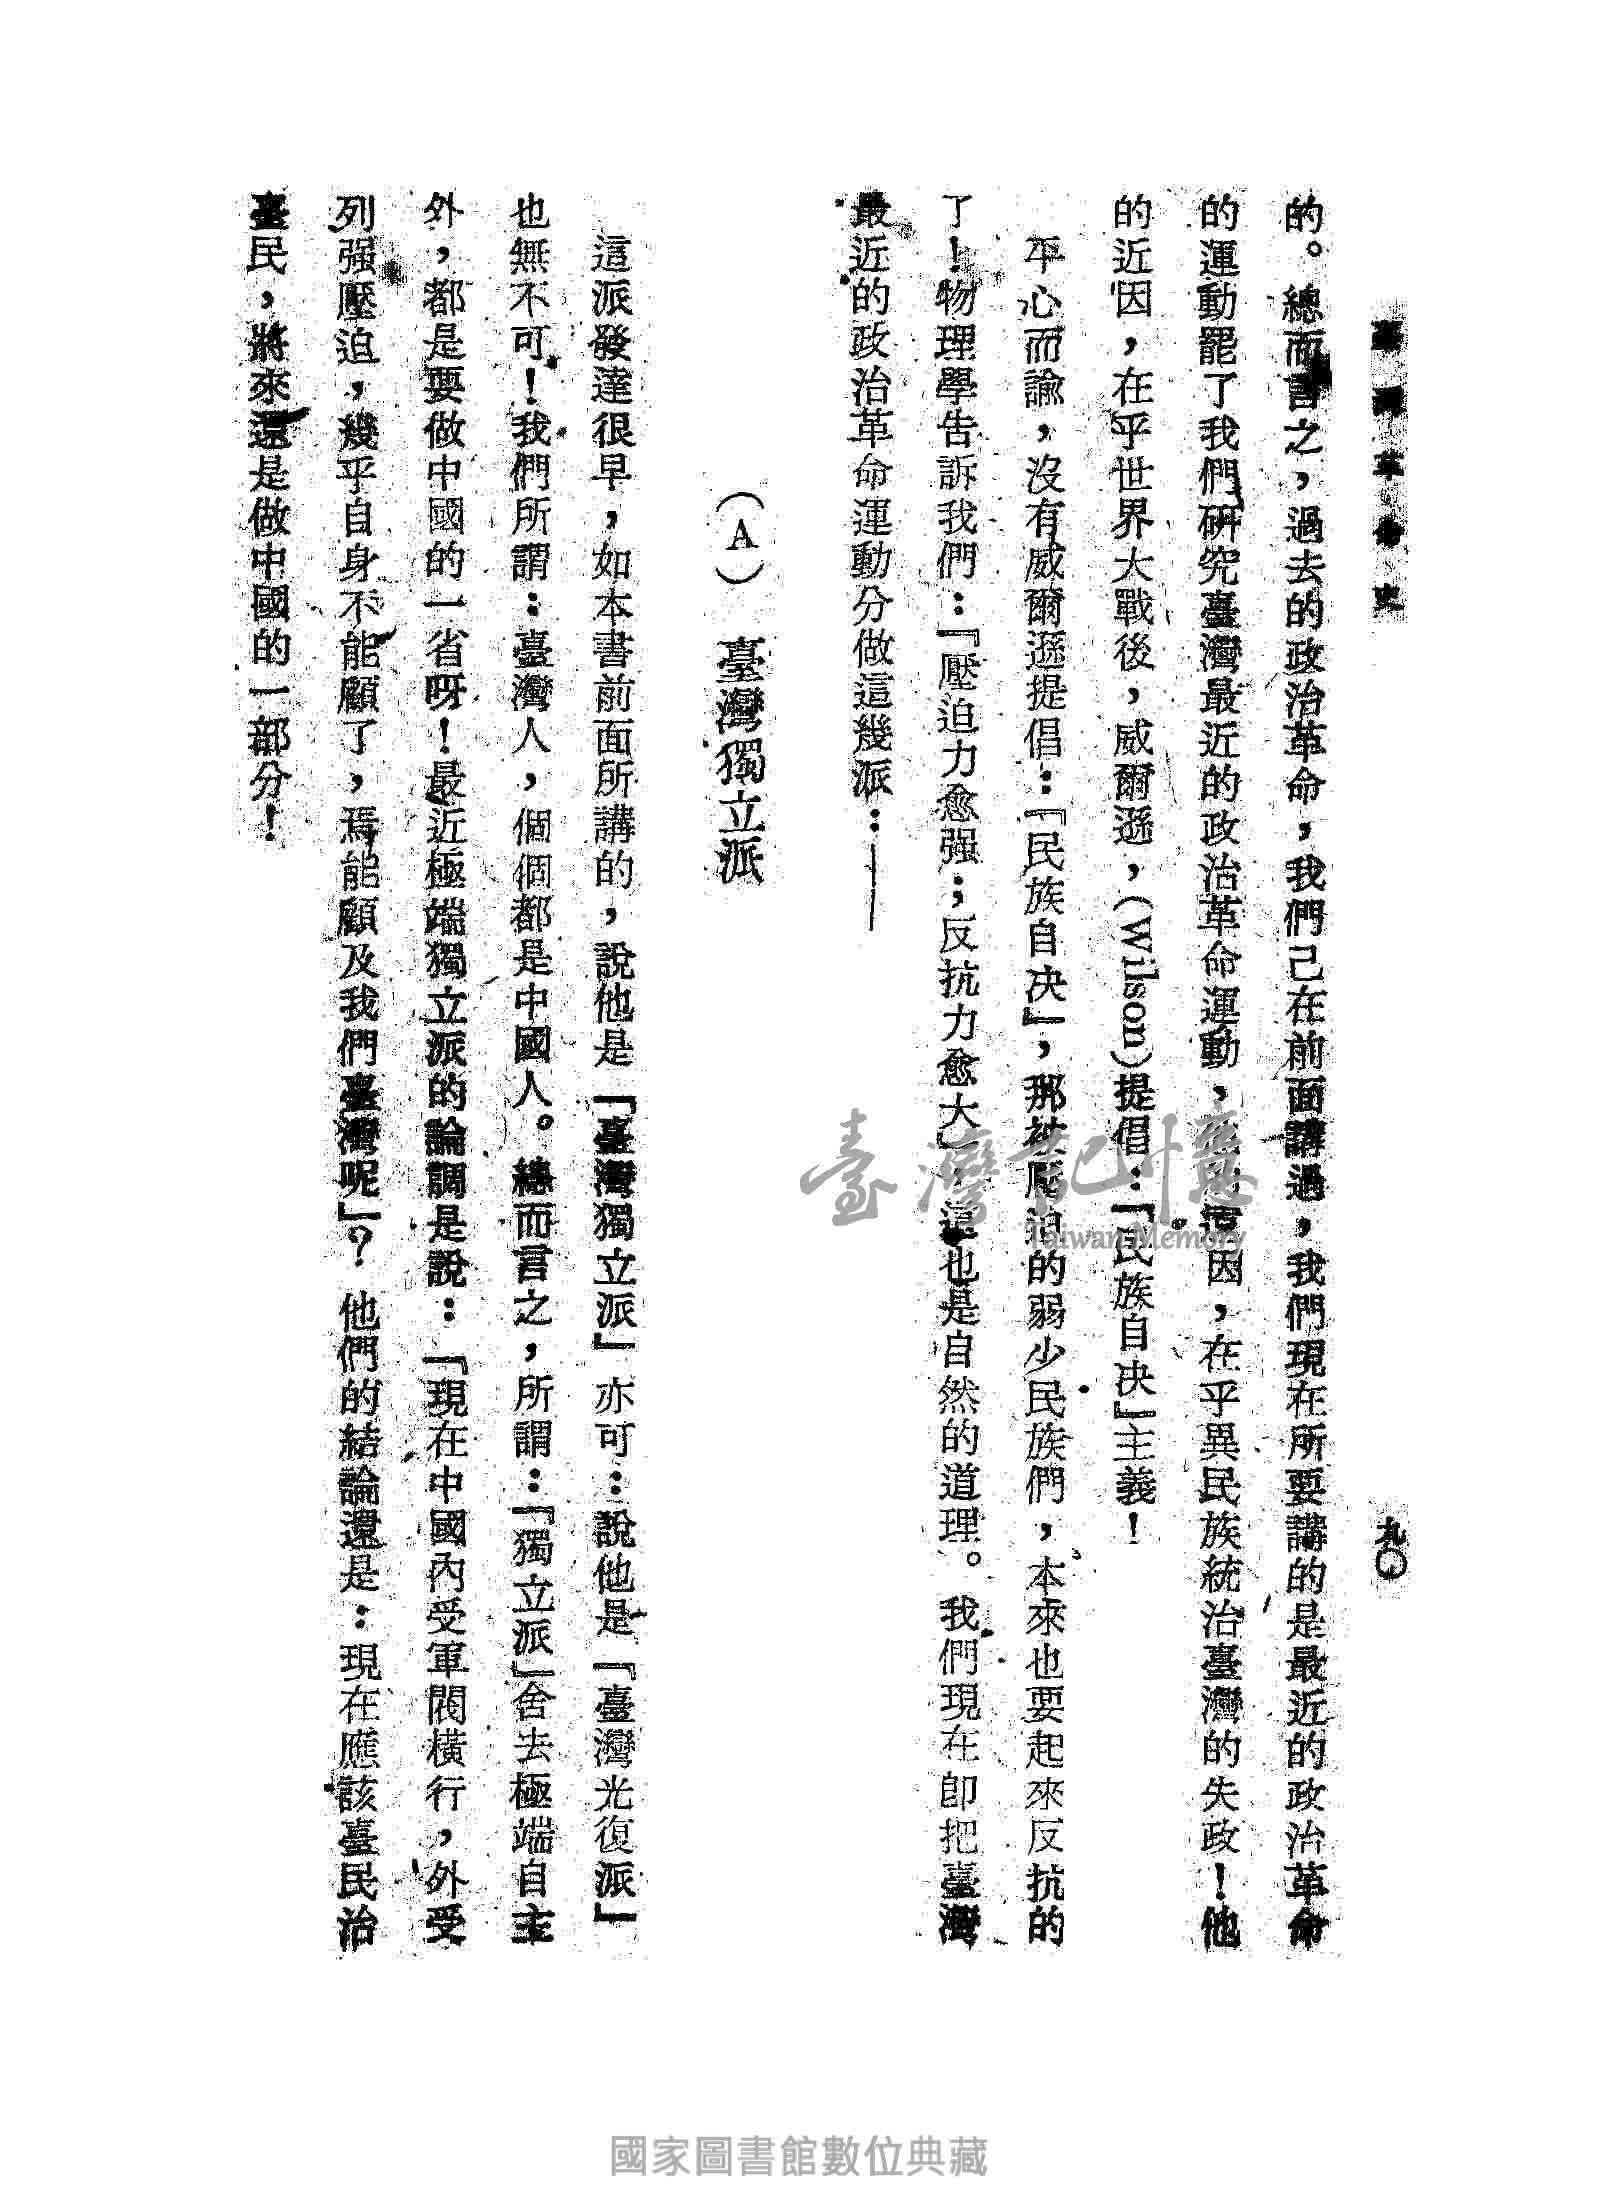 臺灣革命史
九〇
的。總而言之，過去的政治革命，我們己在前面講過，我們現在所要講的是最近的政治革命
的運動罷了我們研究臺灣最近的政治革命運動，因，在乎異民族統治臺灣的失政！他
的近因，在乎世界大戰後，威爾遜，（Wilson）提倡：『民族自決』主義！
平心而論，沒有威爾遜提倡：『民族自決』，那被壓迫的弱少民族們，本來也要起來反抗的
了！物理學告訴我們：『壓迫力愈强；反抗力愈大』，這也是自然的道理。我們現在卽把臺灣
最近的政治革命運動分做這幾派：——
（A）臺灣獨立派
這派發達很早，如本書前面所講的，說他是『臺灣獨立派』亦可：說他是『臺灣光復派』
也無不可！我們所謂：臺灣人，個個都是中國人。總而言之，所謂：『獨立派』舍去極端自主
外，都是要做中國的一省呀！最近極端獨立派的論調是說：『現在中國內受軍閥橫行，外受
列强壓迫，幾乎自身不能顧了，焉能顧及我們臺灣呢』？他們的結論還是：現在應該臺民治
臺民，將來還是做中國的一部分！
臺灣記憶
Taiwan Memory
國家圖書館數位典藏